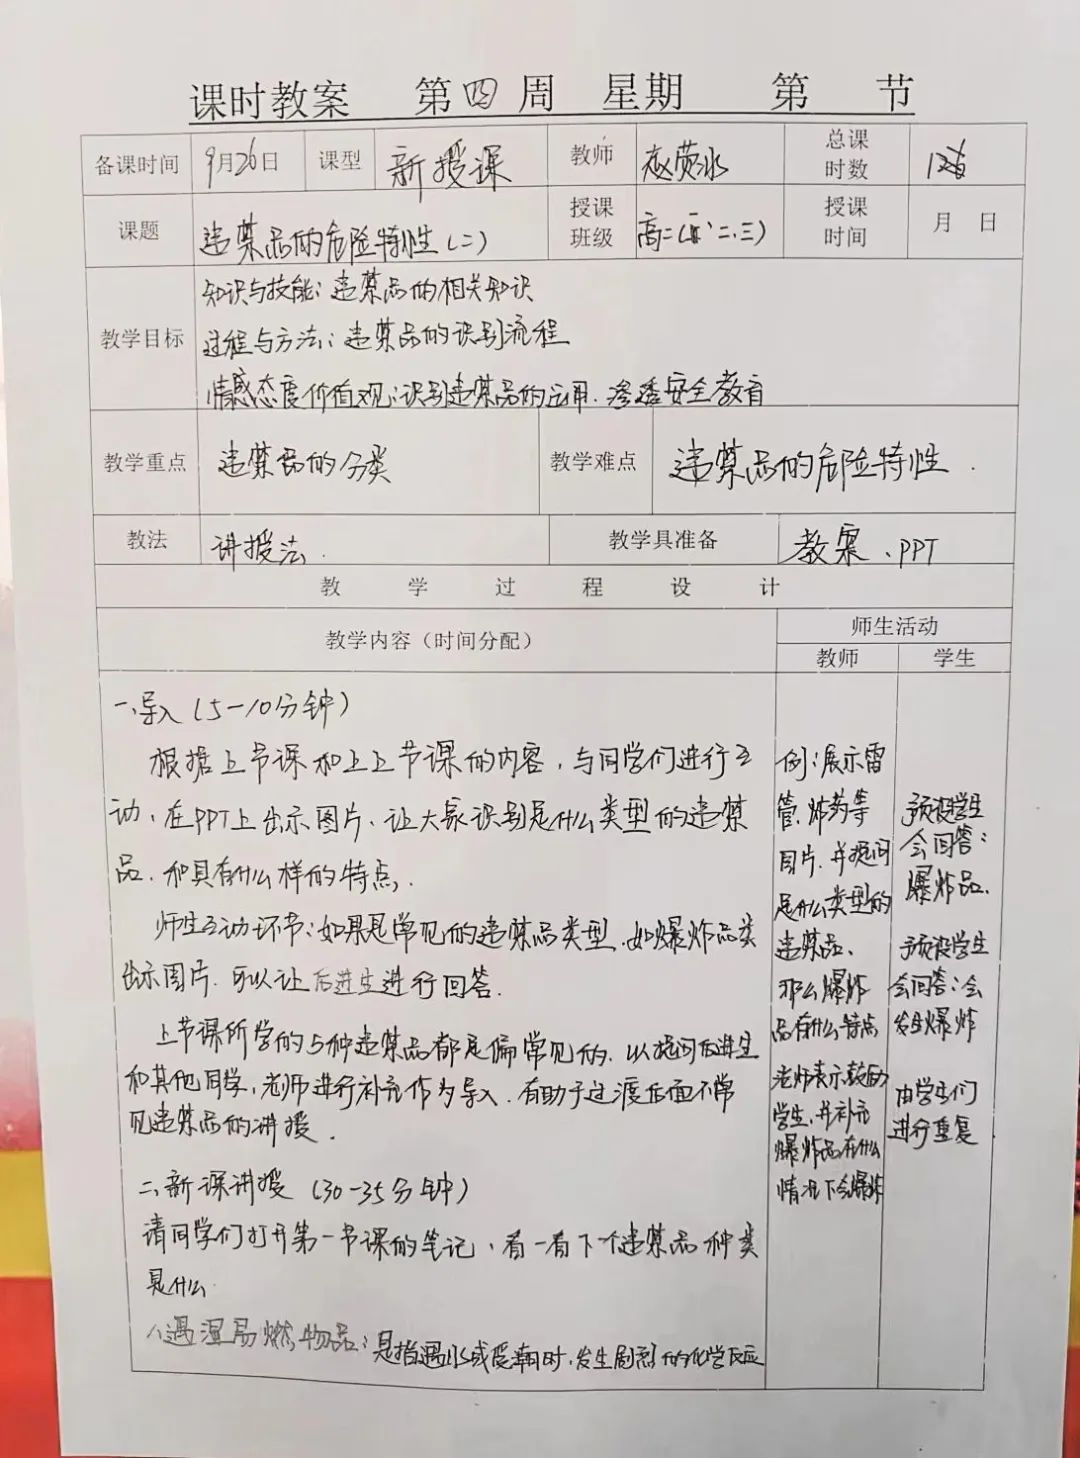 课时教案 第四周 星期 第 节
备课时间 9月26日 课型 新授课 教师 总课时数
课题 违禁品的危险特性(二) 授课班级 高二( 二、三) 授课时间 月 日
教学目标
知识与技能:违禁品的相关知识
过程与方法:违禁品的识别流程
情感态度价值观:识别违禁品的运用、渗透安全教育
教学重点 违禁品的分类 教学难点 违禁品的危险特性.
教法 讲授法. 教学具准备 教案、PPT
教学过程设计
教学内容(时间分配) 师生活动
教师 学生
一、导入(5-10分钟)
根据上节课和上上节课的内容,与同学们进行互
动、在PPT上出示图片、让大家识别是什么类型的违禁
品、和具有什么样的特点.
师生互动环节:如果是常见的违禁品类型、如爆炸品类
出示图片、可以让后进生进行回答.
上节课所学的5种违禁品都是偏常见的、以提问后进生
和其他同学,老师进行补充作为导入、有助于过渡后面不常
见违禁品的讲授.
二、新课讲授(30-35分钟)
请同学们打开第一节课的笔记、看一看下个违禁品种类
是什么.
1、遇湿易燃物品:是指遇水或受潮时、发生剧烈的化学反应
例:展示雷
管、炸药等
图片、并提问
是什么类型的
违禁品、
那么爆炸
品有什么特点
老师表示鼓励
学生、并补充
爆炸品在什么
情况下会爆炸
预设学生
会回答:
爆炸品.
预设学生
会回答:会
发生爆炸
由学生们
进行重复